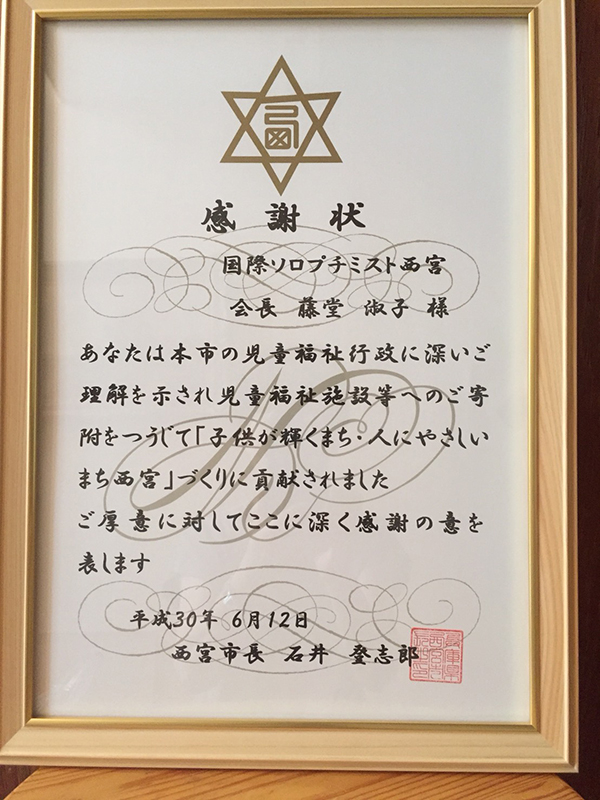 感謝状
国際ソロプチミスト西宮
会長 藤堂 淑子 様
あなたは本市の児童福祉行政に深いご
理解を示され児童福祉施設等へのご寄
附をつうじて「子供が輝くまち・人にやさしい
まち西宮」づくりに貢献されました
ご厚意に対してここに深く感謝の意を
表します
平成30年 6月12日
西宮市長 石井 登志郎